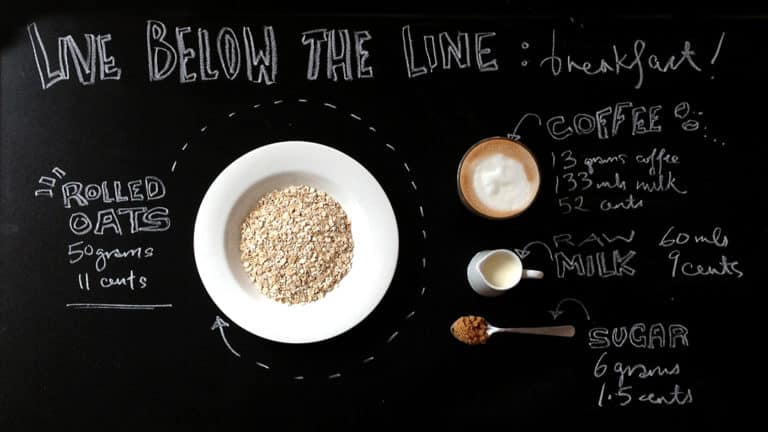 LIVE BELOW THE LINE: breakfast!
ROLLED
OATS
50 grams
11 cents
COFFEE
13 grams coffee
133 mls milk
52 cents
RAW
MILK
60 mls
9 cents
SUGAR
6 grams
1.5 cents